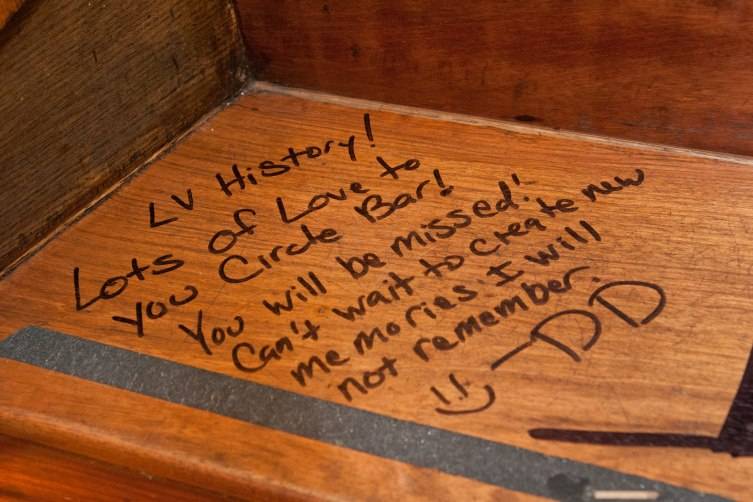 LV History!
Lots of Love to
you Circle Bar!
You will be missed!
Can't wait to create new
memories I will
not remember.
-DD